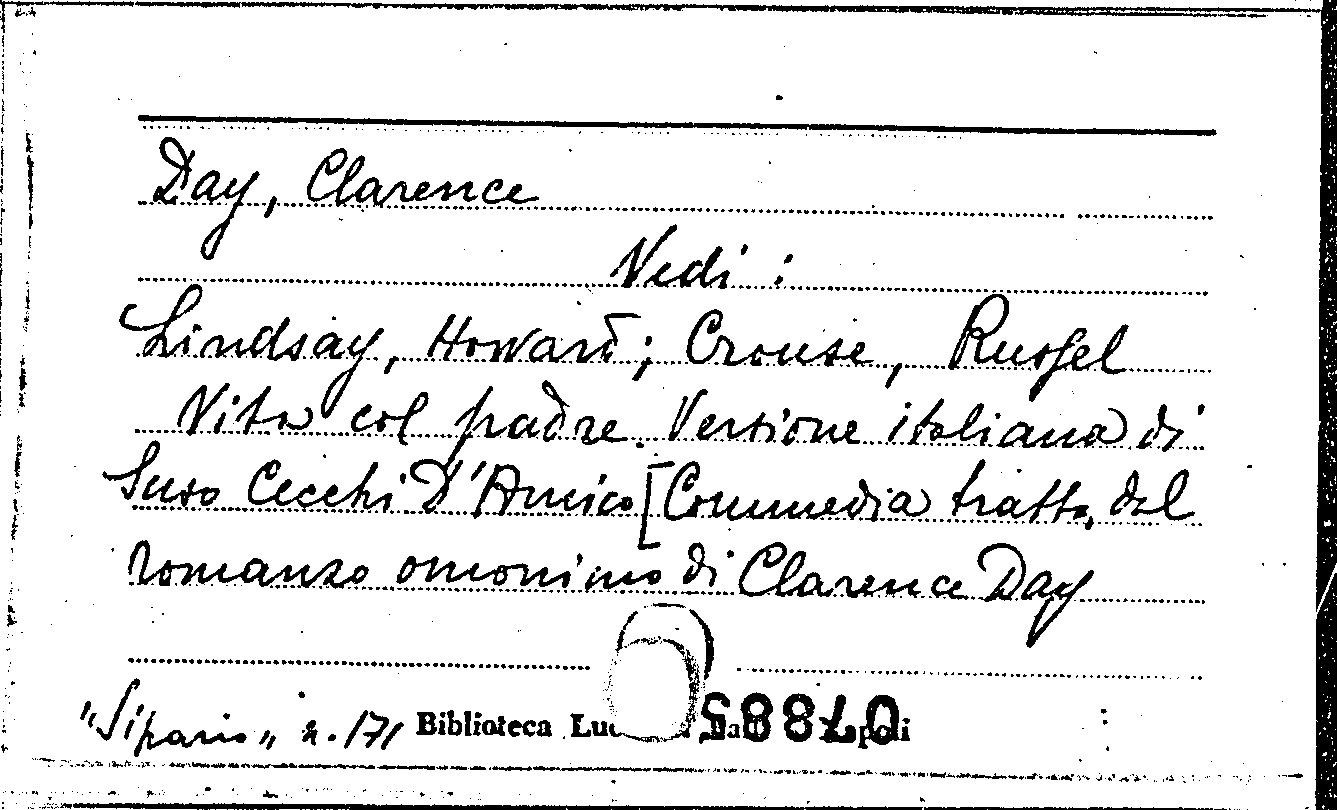 Day, Clarence
Vedi :
Lindsay, Howard; Crouse, Russel
Vita col padre. Versione italiana di
Suso Cecchi D'Amico [Commedia tratta dal
romanzo omonimo di Clarence Day
"Sipario" n. 171 Biblioteca 07885